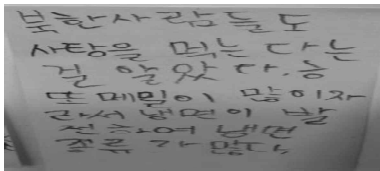 북한사람들도
사탕을 먹는다는
걸 알았다.
또 메밀이 많이자
라서 냉면이 발
전하여 냉면
종류가 많다.